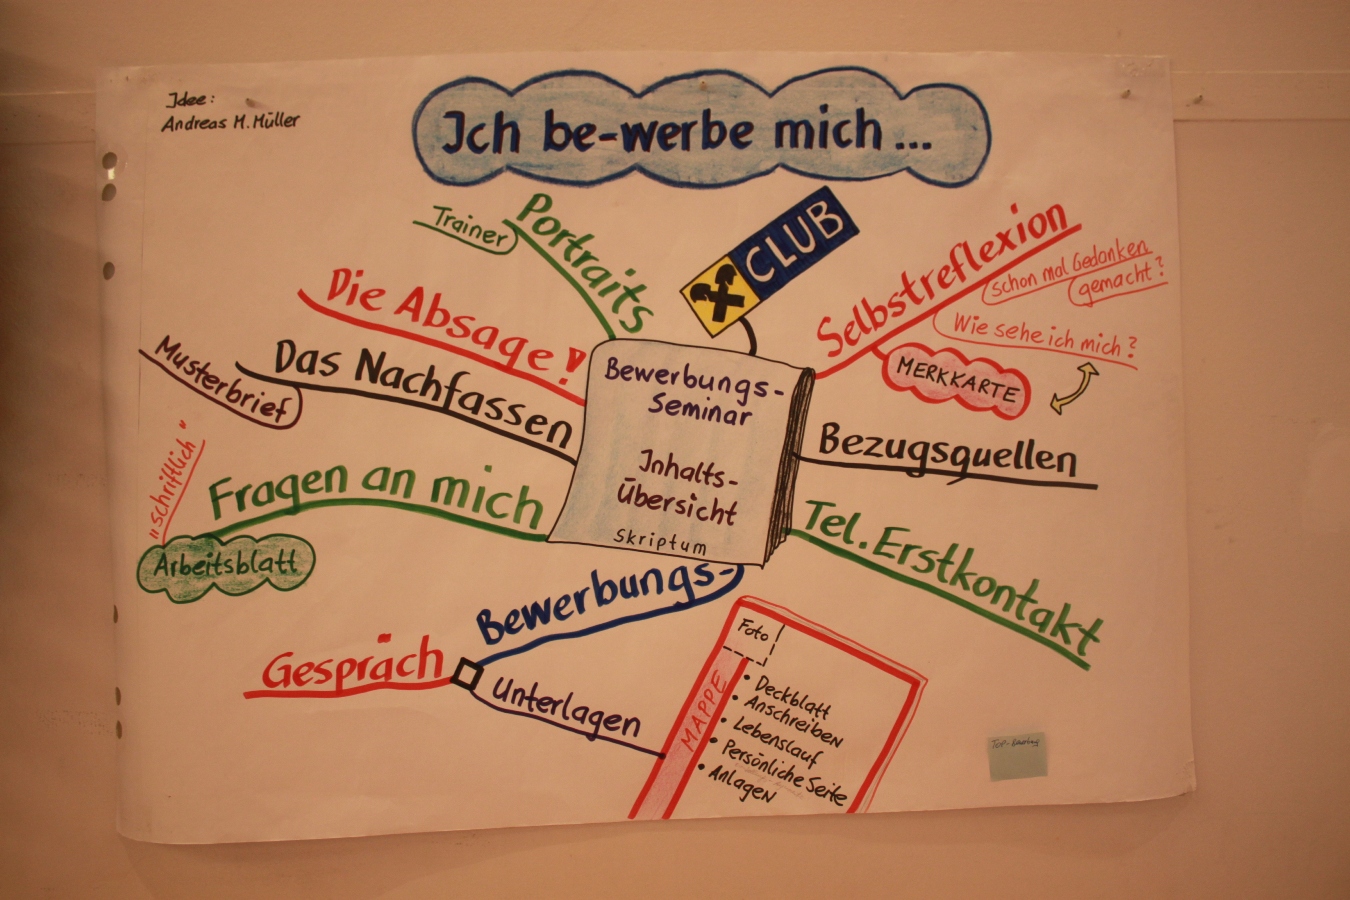 Idee:
Andreas M. Müller
Ich be-werbe mich...
Trainer
Portraits
CLUB
Selbstreflexion
schon mal Gedanken
gemacht?
Wie sehe ich mich?
MERKKARTE
Die Absage!
Das Nachfassen
Musterbrief
Bewerbungs-
Seminar
Inhalts-
Übersicht
Skriptum
Bezugsquellen
"schriftlich"
Fragen an mich
Arbeitsblatt
Tel. Erstkontakt
Bewerbungs-
Gespräch
Unterlagen
Foto
MAPPE
• Deckblatt
• Anschreiben
• Lebenslauf
• Persönliche Seite
• Anlagen